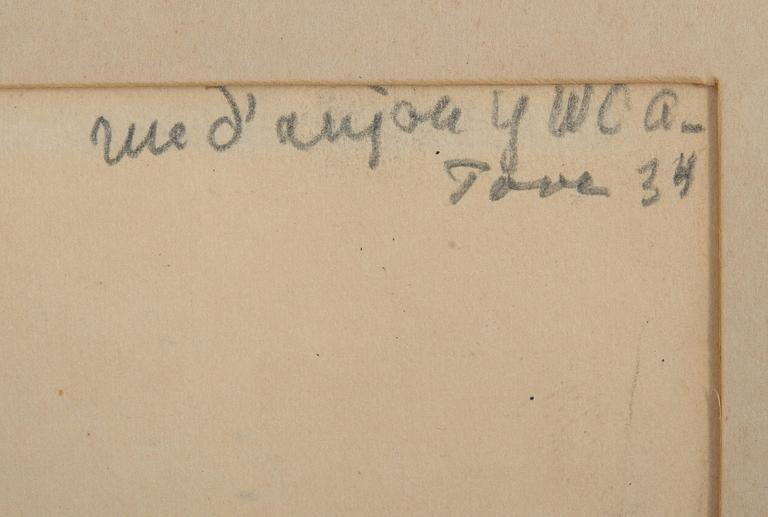 rue d'anjou YWCA-
Tove 34